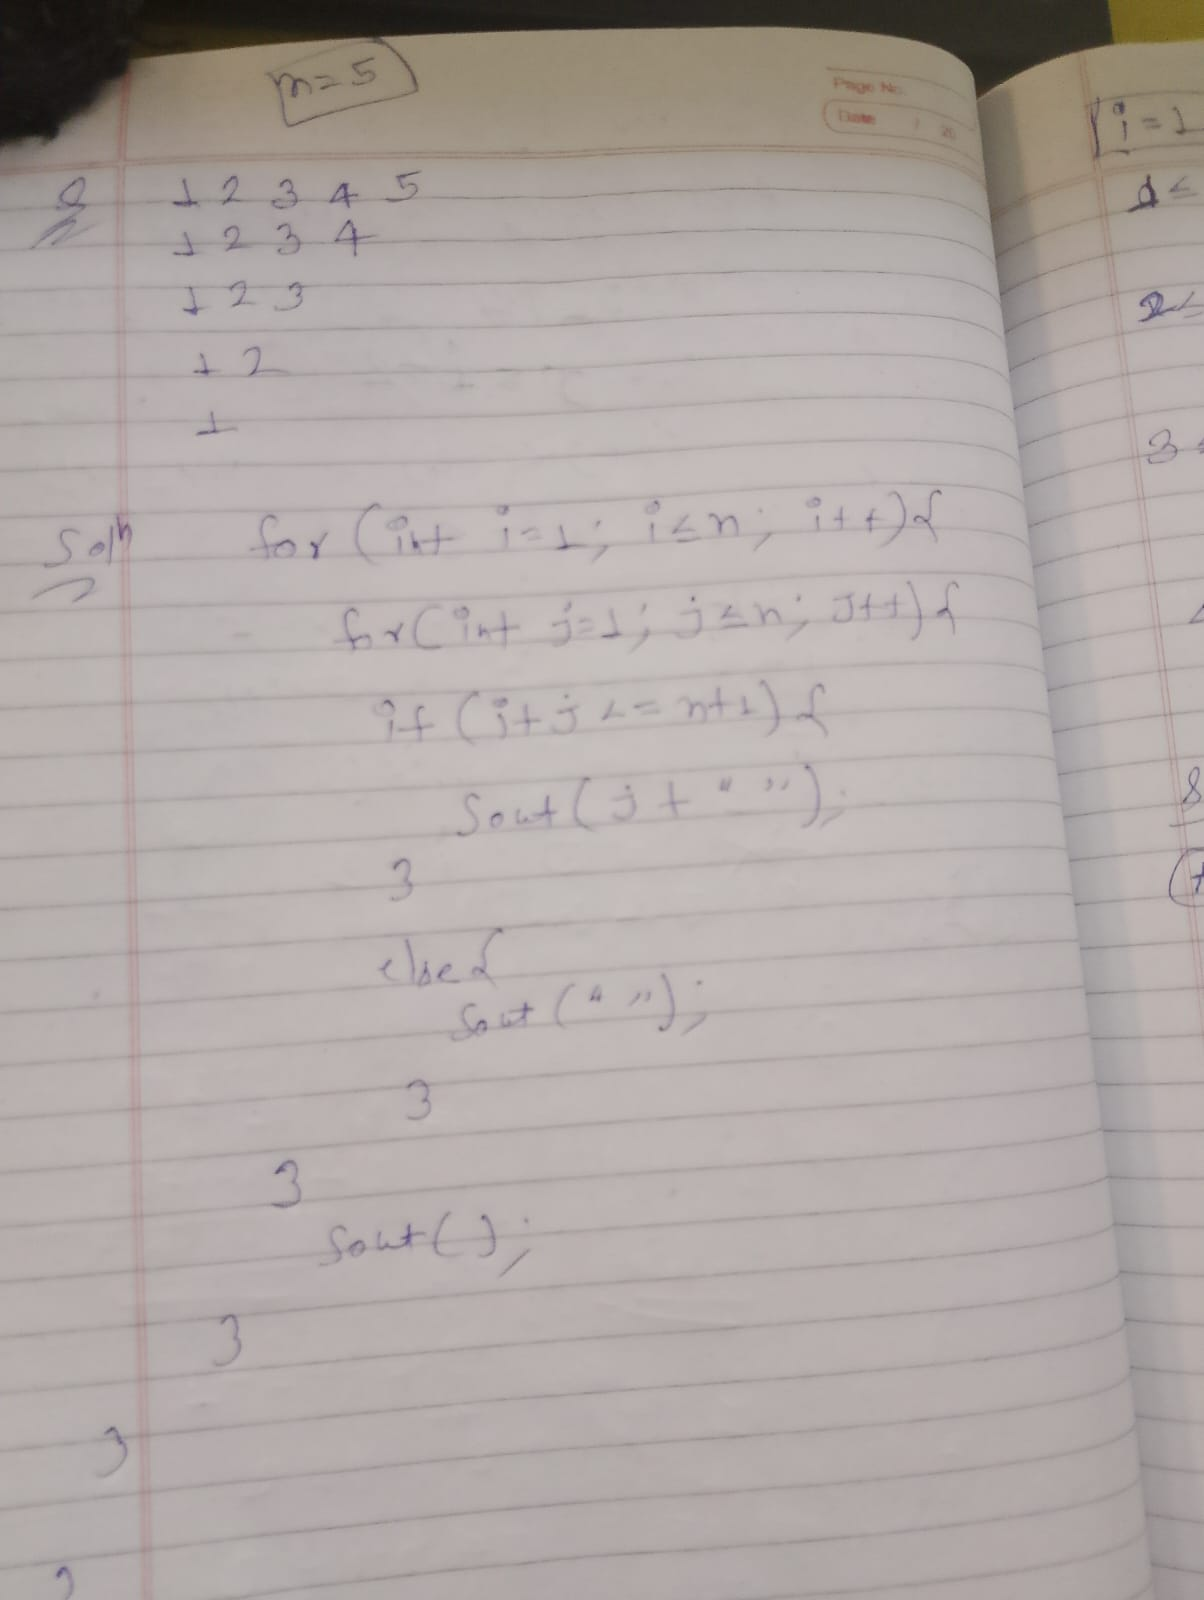 n=5
Page No.
Date / 20
Q 1 2 3 4 5
1 2 3 4
1 2 3
1 2
1
Soln for (int i=1; i≤n; i++){
for(int j=1; j≤n; J++){
if (i+j <= n+1){
Sout(j+" ");
}
else{
Sout(" ");
}
}
Sout();
}
}
i=1
1≤
2≤
3